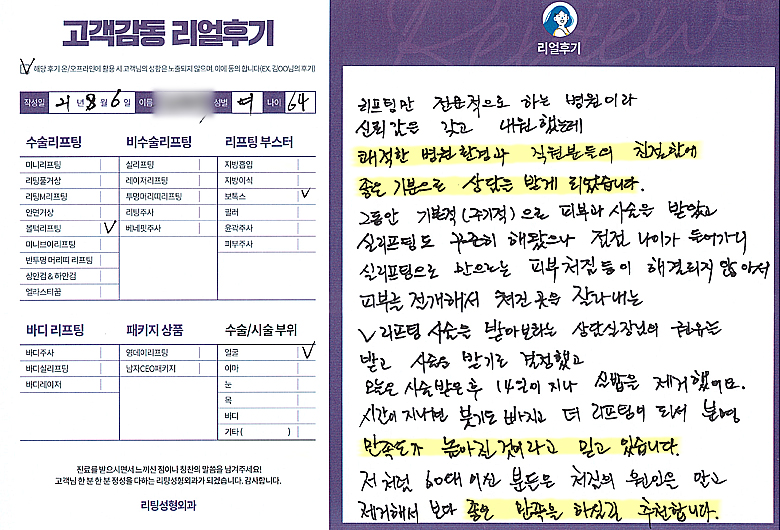 고객감동 리얼후기
해당 후기 온/오프라인에 활용 시 고객님의 성함은 노출되지 않으며, 이에 동의 합니다(EX. 김OO님의 후기)
작성일 21년 8월 6일 이름 성별 여 나이 64
수술리프팅
미니리프팅
리팅풀거상
리팅M리프팅
안면거상
볼턱리프팅
미니브이리프팅
반투명 머리띠 리프팅
상안검 & 하안검
엘라스티꿈
비수술리프팅
실리프팅
레이저리프팅
투명머리띠리프팅
리팅주사
베네핏주사
리프팅 부스터
지방흡입
지방이식
보톡스
필러
윤곽주사
피부주사
바디 리프팅
바디주사
바디실리프팅
바디레이저
패키지 상품
영데이리프팅
남자CEO패키지
수술/시술 부위
얼굴
이마
눈
목
바디
기타( )
진료를 받으시면서 느끼신 점이나 칭찬의 말씀을 남겨주세요!
고객님 한 분 한 분 정성을 다하는 리팅성형외과가 되겠습니다. 감사합니다.
리팅성형외과
Review
리얼후기
리프팅만 전문적으로 하는 병원이라
신뢰감은 갖고 내원했는데
쾌적한 병원환경과 직원분들의 친절함에
좋은 기분으로 상담을 받게 되었습니다.
그동안 기본적(주기적)으로 피부과 시술을 받았고
실리프팅도 꾸준히 해왔으나 점점 나이가 들어가니
실리프팅으로 만으로는 피부처짐등이 해결되지 않아서
피부를 전개해서 쳐진 곳을 잘라내는
V리프팅 시술을 받아보라는 상담실장님의 권유를
받고 시술을 받기로 결정했고
오늘은 시술받은 후 14일이 지나 실밥을 제거했어요.
시간이 지나면 붓기도 빠지고 더 리프팅이 되서 분명
만족도가 높아질 것이라고 믿고 있습니다.
저 처럼 60대 이신 분들은 처짐의 원인을 알고
제거해서 보다 좋은 만족을 하실길 추천합니다.